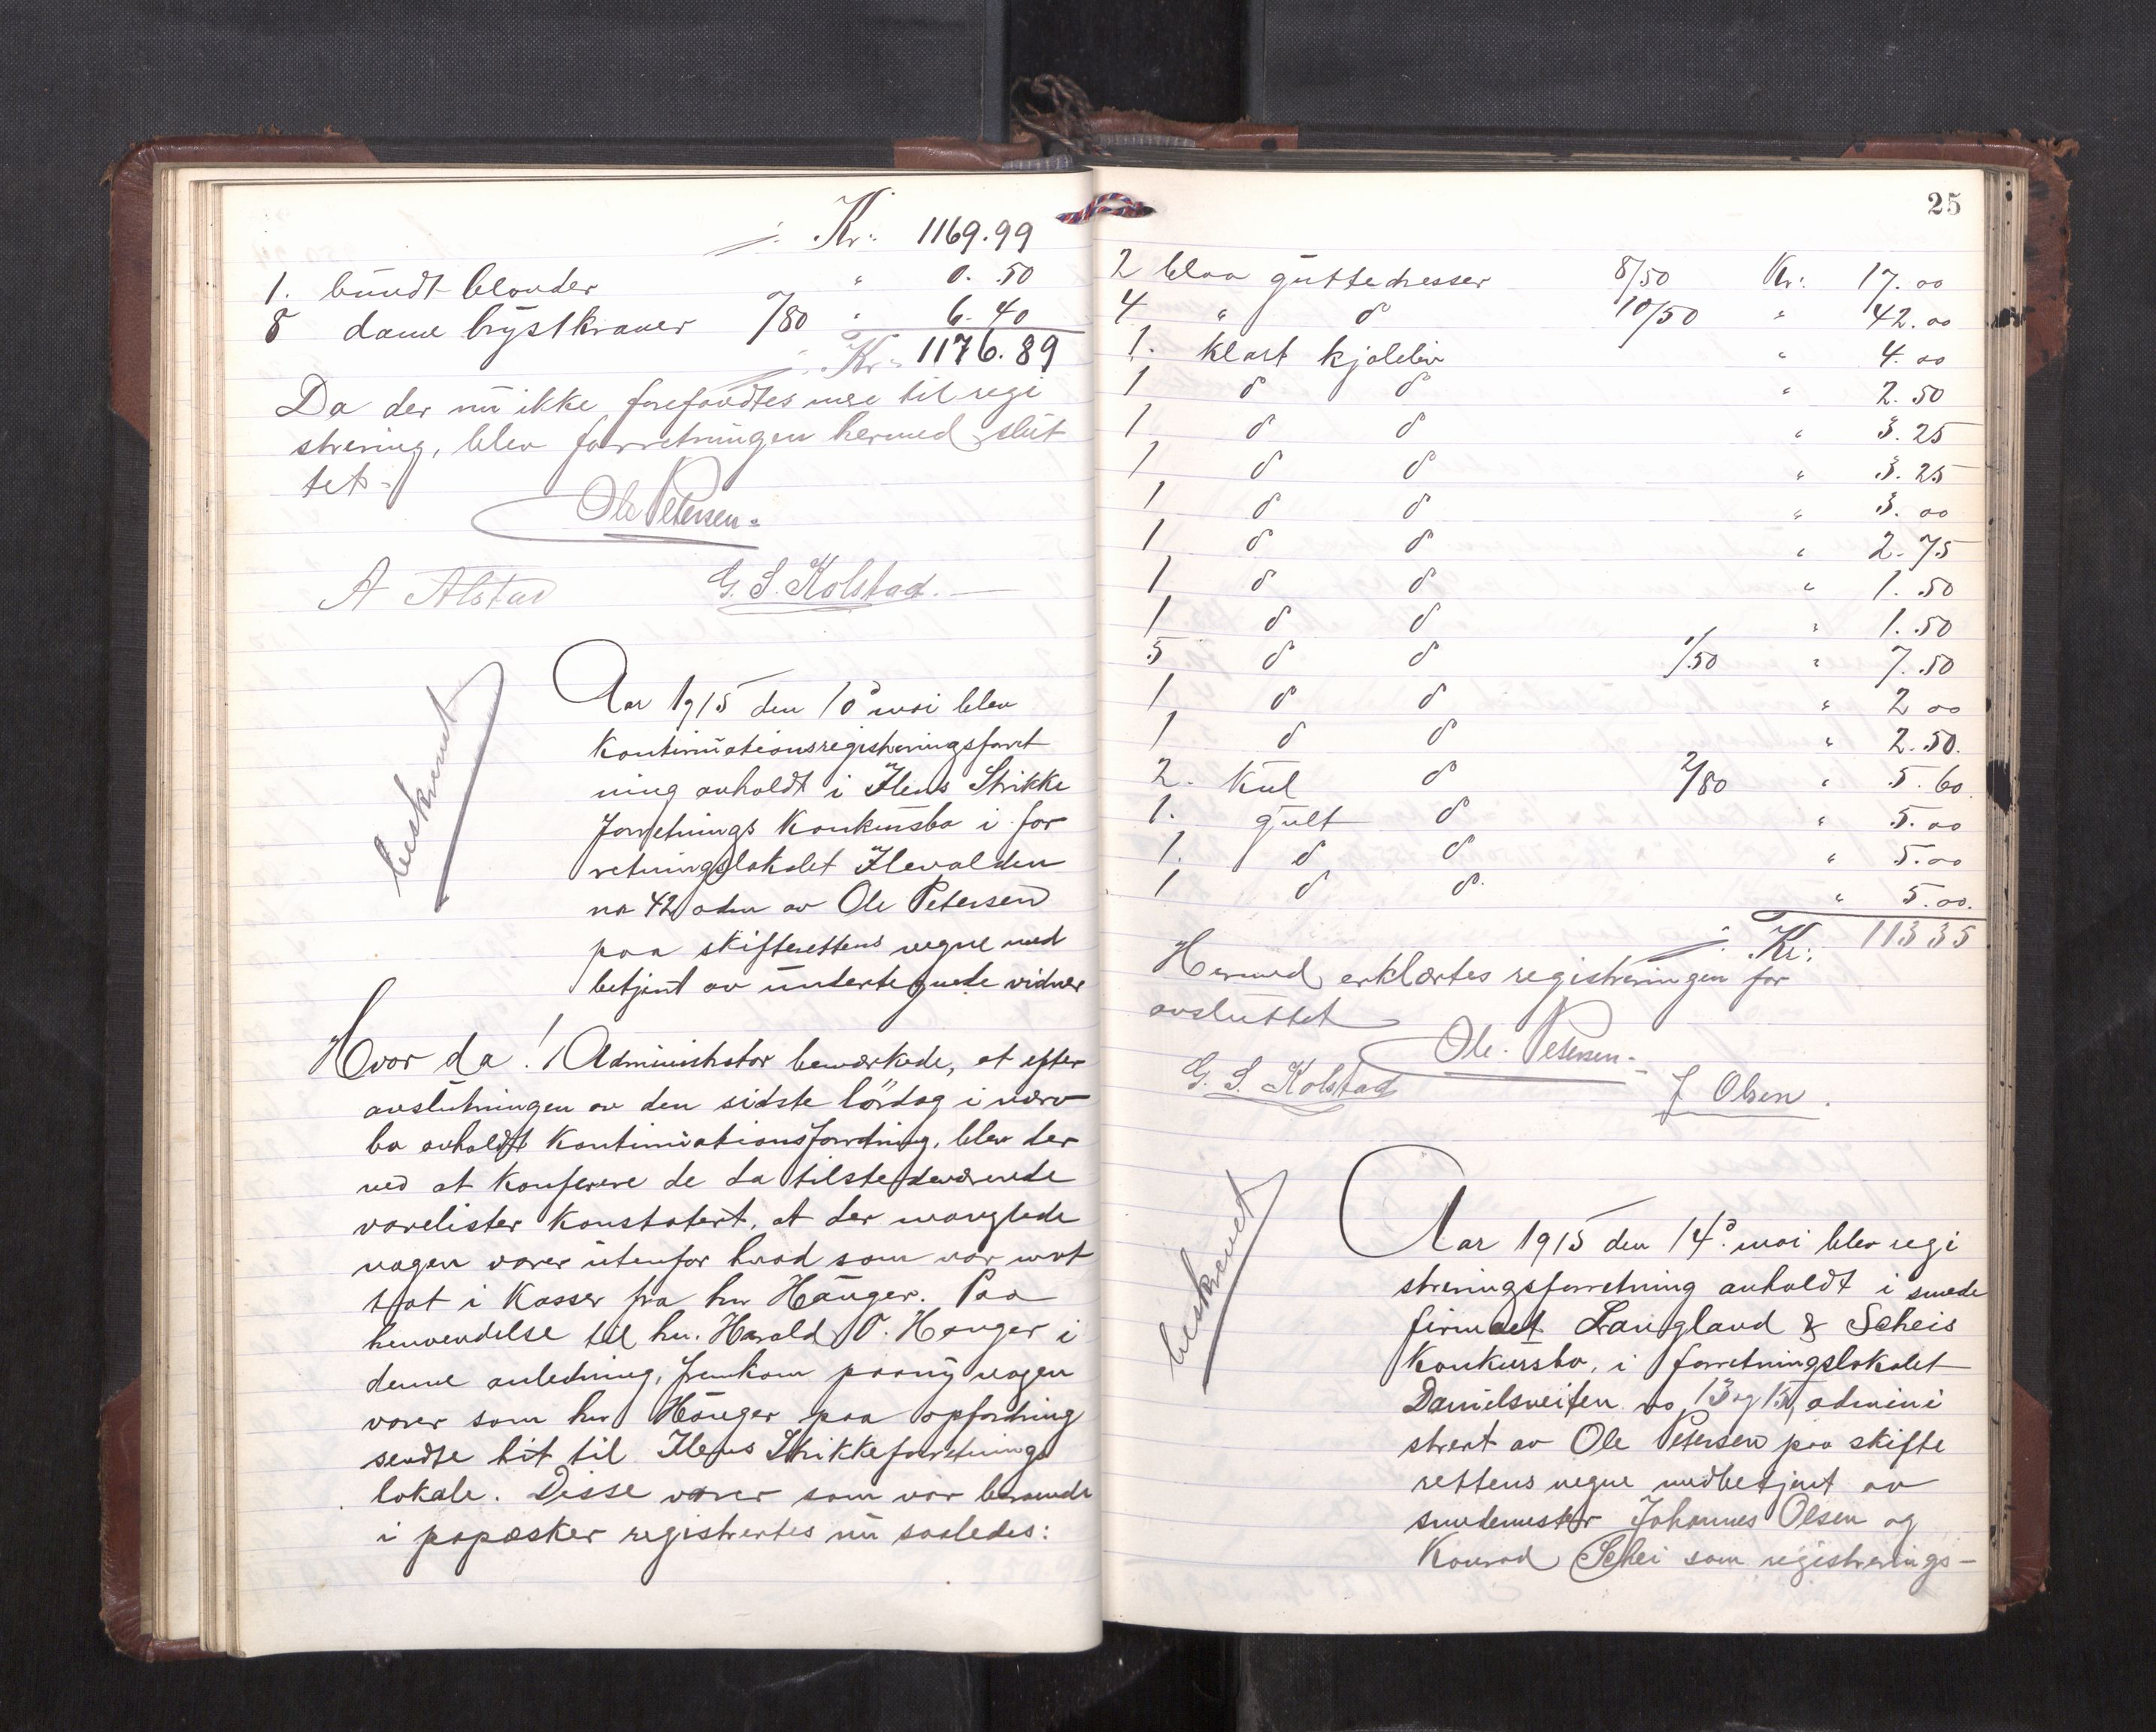 ⁒ Kr: 1169.99
1. bundt blonder " 0.50
8 dame brystkraver /80 " 6.40
⁒ Kr: 1176.89
Da der nu ikke forefandtes mere til regi
strering, blev forretningen hermed slut
tet.
Ole Petersen.
A Alstad G. S. Kolstad.
beskrevet
Aar 1915 den 10de mai blev
Kontinuationsregistreringsforret
ning avholdt i Ilens Strikke
forretnings Konkursbo i for
retningslokalet Ilevolden
no 42 adm av Ole Petersen
paa skifterettens vegne med
betjent av undertegnede vidner
Hvor da! Administrator bemærkede, at efter
avslutningen av den sidste lördag i nærv
bo avholdt Kontinuationsforretning, blev der
ved at Konferere de da tilstedeværende
varelister Konstatert, at der manglede
nogen varer utenfor hvad som var mot
tat i Kasser fra hr Hånger. Paa
henvendelse til hr. Harald O. Hånger i
denne anledning, fremkom paany nogen
varer som hr Hånger paa opfordring
sendte hit til Ilens Strikkeforretnings
lokale. Disse varer som var beroende
i papæsker registrertes nu saaledes:
25
2 blaa guttedresser 8/50 Kr: 17.00
4 " d 10/50 " 42.00
1. klart kjoleliv " 4.00
1 d d " 2.50
1 d d " 3.25
1 d d " 3.25
1 d d " 3.00
1 d d " 2.75
1 d d " 1.50
1 d d " 1.50
5 d d 1/50 " 7.50
1 d d " 2 00
1 d d " 2.50.
2. Kul d 2/80 " 5.60.
1. gult d " 5.00
1. d d " 5.00
1 d d. " 5.00.
⁒ Kr: 113 35
Hermed erklærtes registreringen for
avsluttet
Ole. Petersen.
G. S. Kolstad J Olsen.
beskrevet
Aar 1915 den 14de mai blev regi
streringsforretning avholdt i smede
firmaet Langland & Scheis
Konkursbo, i forretningslokalet
Danielsveiten no 13 og 15, admini
strert av Ole Petersen paa skifte
rettens vegne medbetjent av
smedemester Johannes Olsen og
Konrad Schei som registrerings-